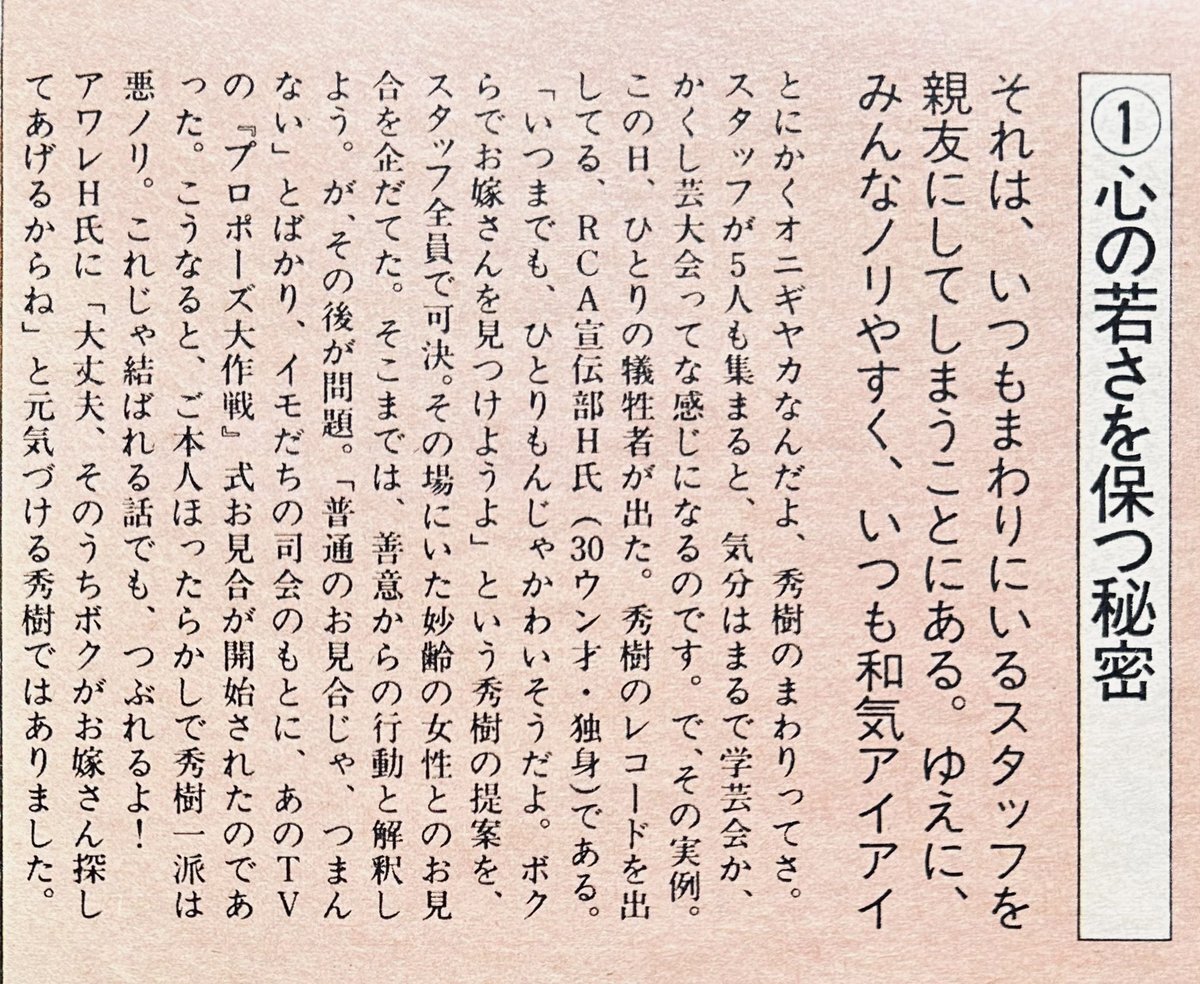 ①心の若さを保つ秘密
それは、いつもまわりにいるスタッフを
親友にしてしまうことにある。ゆえに、
みんなノリやすく、いつも和気アイアイ
とにかくオニギヤカなんだよ、秀樹のまわりってさ。
スタッフが5人も集まると、気分はまるで学芸会か、
かくし芸大会ってな感じになるのです。で、その実例。
この日、ひとりの犠牲者が出た。秀樹のレコードを出
してる、RCA宣伝部H氏(30ウン才・独身)である。
「いつまでも、ひとりもんじゃかわいそうだよ。ボク
らでお嫁さんを見つけようよ」という秀樹の提案を、
スタッフ全員で可決。その場にいた妙齢の女性とのお見
合を企だてた。そこまでは、善意からの行動と解釈し
よう。が、その後が問題。「普通のお見合じゃ、つまん
ない」とばかり、イモだちの司会のもとに、あのTV
の『プロポーズ大作戦』式お見合が開始されたのであ
った。こうなると、ご本人ほったらかしで秀樹一派は
悪ノリ。これじゃ結ばれる話でも、つぶれるよ!
アワレH氏に「大丈夫、そのうちボクがお嫁さん探し
てあげるからね」と元気づける秀樹ではありました。